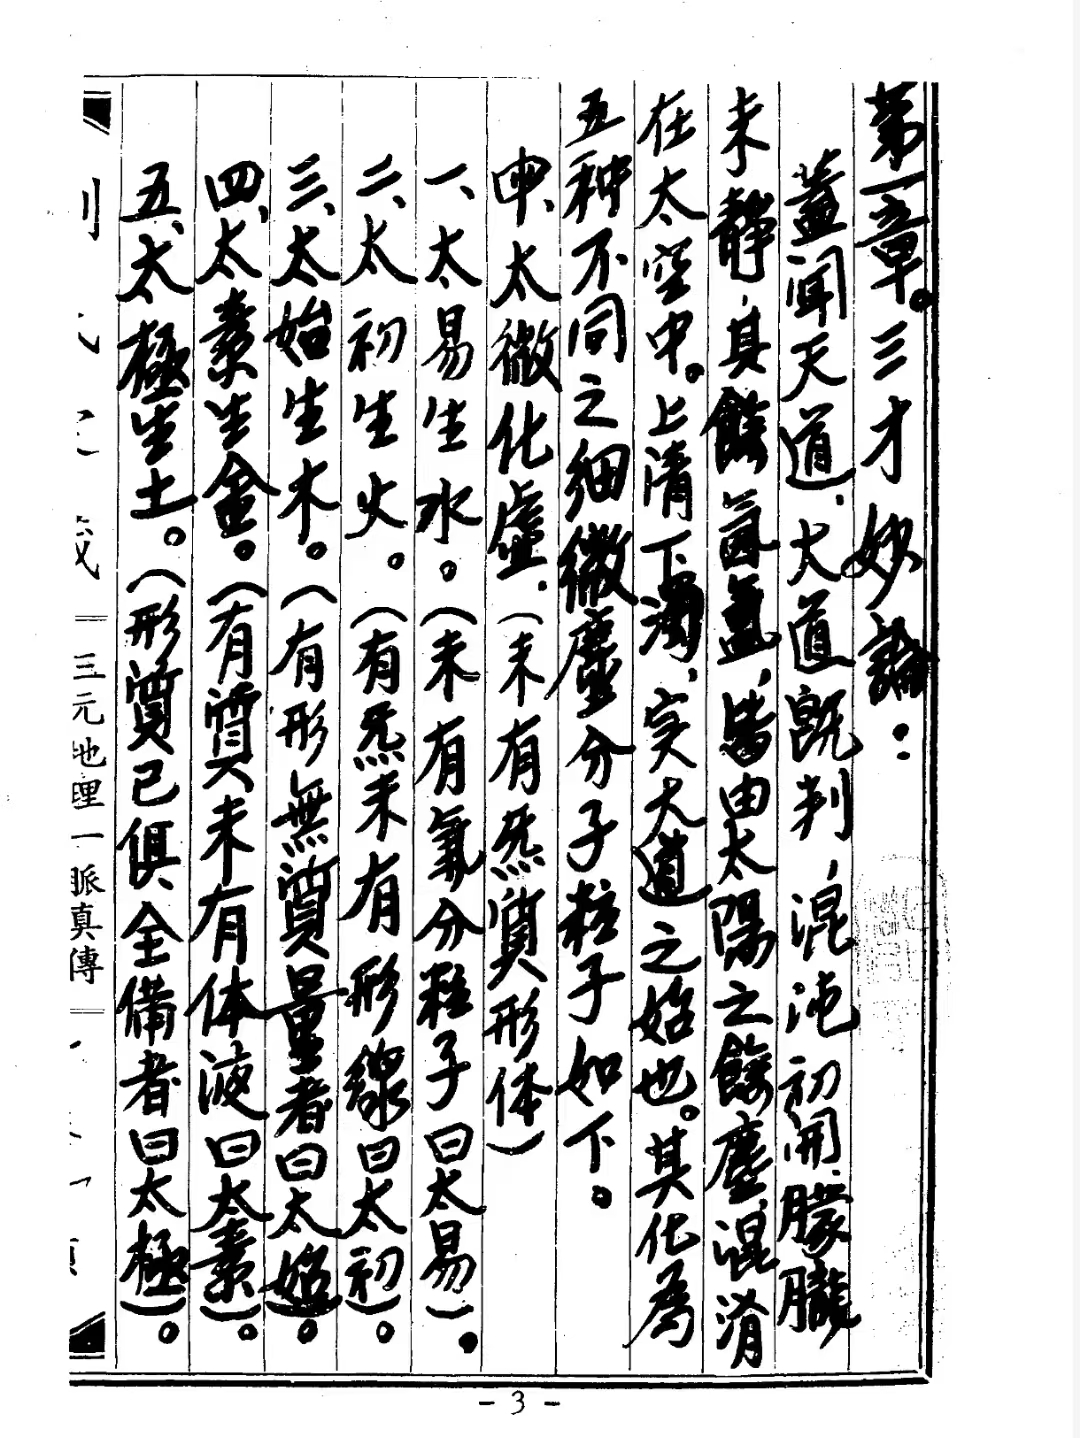 第一章。三才妙論：
蓋聞天道、大道既判，混沌初開、朦朧
未靜，其餘氤氳，皆由太陽之餘塵，混淆
在太空中。上清下濁，实大道之始也。其化為
五种不同之细微塵分子粒子如下。
申、太微化虛．（未有炁質形体）
一、太易生水。（未有氣分粒子曰太易）。
二、太初生火。（有炁未有形線曰太初）。
三、太始生木。（有形無質量者曰太始）。
四、太素生金。（有質未有体液曰太素）。
五、太極生土。（形質已俱、全備者曰太極）。
三元地理一脈真傳
- 3 -